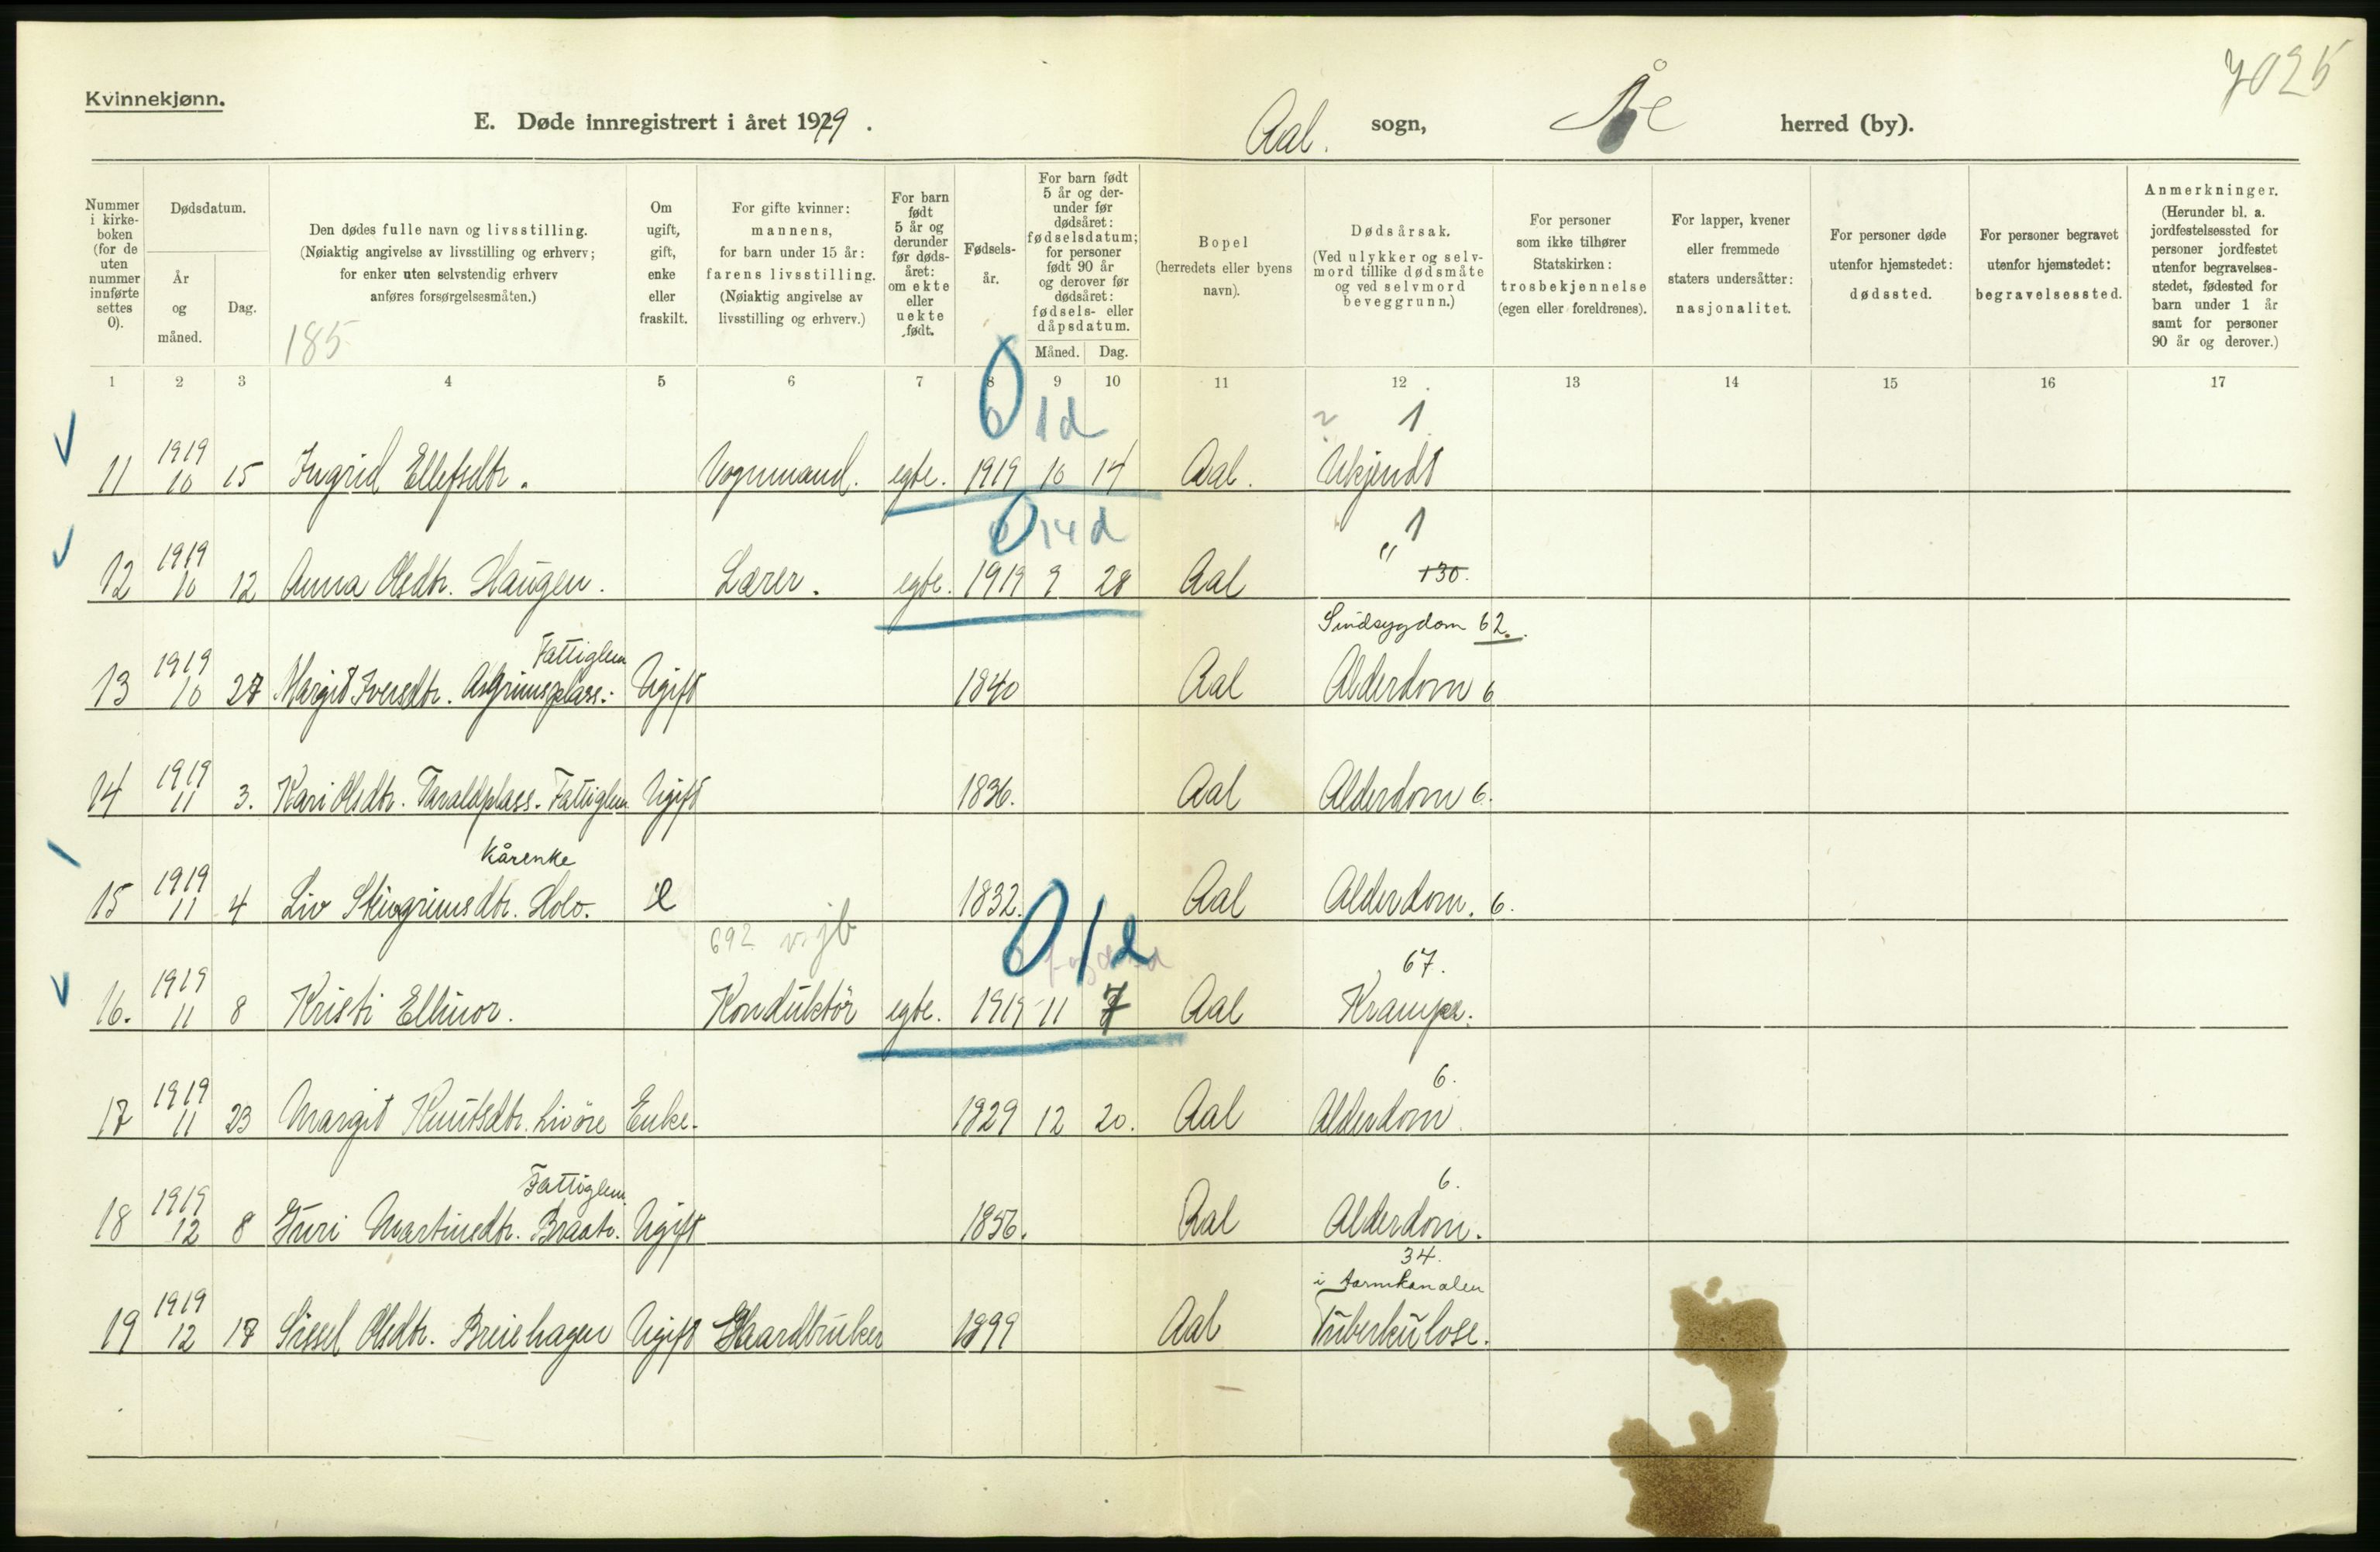 Kvinnekjønn.
7025
E. Døde innregistrert i året 1919.
Aal. sogn, Ål herred (by).
Nummer i kirkeboken (for de uten nummer innførte settes 0).
Dødsdatum.
År og måned.
Dag.
Den dødes fulle navn og livsstilling.
(Nøiaktig angivelse av livsstilling og erhverv; for enker uten selvstendig erhverv anføres forsørgelsesmåten.)
185
Om ugift, gift, enke eller fraskilt.
For gifte kvinner: mannens, for barn under 15 år: farens livsstilling. (Nøiaktig angivelse av livsstilling og erhverv.)
For barn født 5 år og derunder før dødsåret: om ekte eller uekte født.
Fødselsår.
For barn født 5 år og derunder før dødsåret: fødselsdatum; for personer født 90 år og derover før dødsåret: fødsels- eller dåpsdatum.
Måned. Dag.
Bopel (herredets eller byens navn).
Dødsårsak. (Ved ulykker og selvmord tillike dødsmåte og ved selvmord beveggrunn.)
For personer som ikke tilhører Statskirken: trosbekjennelse (egen eller foreldrenes).
For lapper, kvener eller fremmede staters undersåtter: nasjonalitet.
For personer døde utenfor hjemstedet: dødssted.
For personer begravet utenfor hjemstedet: begravelsessted.
Anmerkninger. (Herunder bl. a. jordfestelsessted for personer jordfestet utenfor begravelsesstedet, fødested for barn under 1 år samt for personer 90 år og derover.)
1 2 3 4 5 6 7 8 9 10 11 12 13 14 15 16 17
0 1 d 1
11 1919 10 15 Ingrid Ellefsdtr. Vognmand. egte. 1919 10 14 Aal. Ukjendt
0 14 d 1
12 1919 10 12 Anna Olsdtr. Haugen. Lærer. egte. 1919 9 28 Aal " 130.
Sindsygdom 62.
Fattiglem
13 1919 10 27 Margit Iversdtr. Asgrimsplass. Ugift 1840 Aal Alderdom 6
14 1919 11 3. Kari Olsdtr. Taraldplass. Fattiglem Ugift 1836. Aal Alderdom 6.
Kårenke
15 1919 11 4 Liv Steingrimsdtr. Holo. e 1832. Aal Alderdom. 6.
692 0 1 d
67.
16. 1919 11 8 Kristi Ellinor. Konduktör egte. 1919 11 7 Aal Krampe.
6.
17 1919 11 23 Margit Knutsdtr. Livöre Enke. 1829 12 20. Aal Alderdom
Fattiglem 6.
18 1919 12 8 Guri Martinsdtr. Braate. Ugift 1856. Aal Alderdom.
34.
i tarmkanalen
19 1919 12 17 Sissel Olsdtr. Breiehagen Ugift Gaardbruker 1899 Aal Tuberkulose.